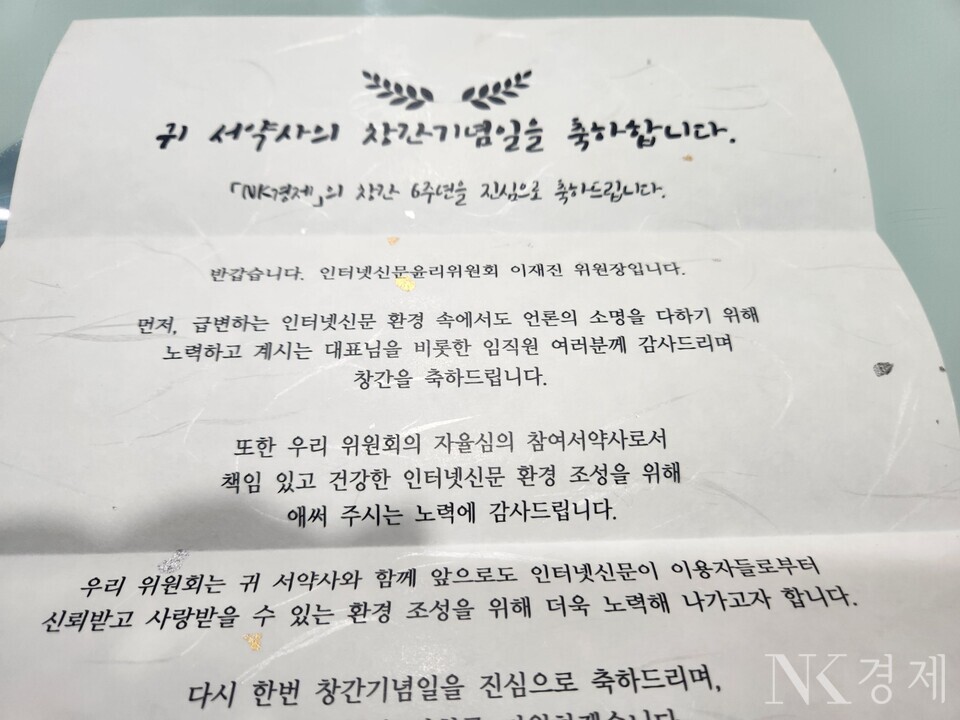 귀 서약사의 창간기념일을 축하합니다.
「NK경제」의 창간 6주년을 진심으로 축하드립니다.
반갑습니다. 인터넷신문윤리위원회 이재진 위원장입니다.
먼저, 급변하는 인터넷신문 환경 속에서도 언론의 소명을 다하기 위해
노력하고 계시는 대표님을 비롯한 임직원 여러분께 감사드리며
창간을 축하드립니다.
또한 우리 위원회의 자율심의 참여서약사로서
책임 있고 건강한 인터넷신문 환경 조성을 위해
애써 주시는 노력에 감사드립니다.
우리 위원회는 귀 서약사와 함께 앞으로도 인터넷신문이 이용자들로부터
신뢰받고 사랑받을 수 있는 환경 조성을 위해 더욱 노력해 나가고자 합니다.
다시 한번 창간기념일을 진심으로 축하드리며,
NK경제